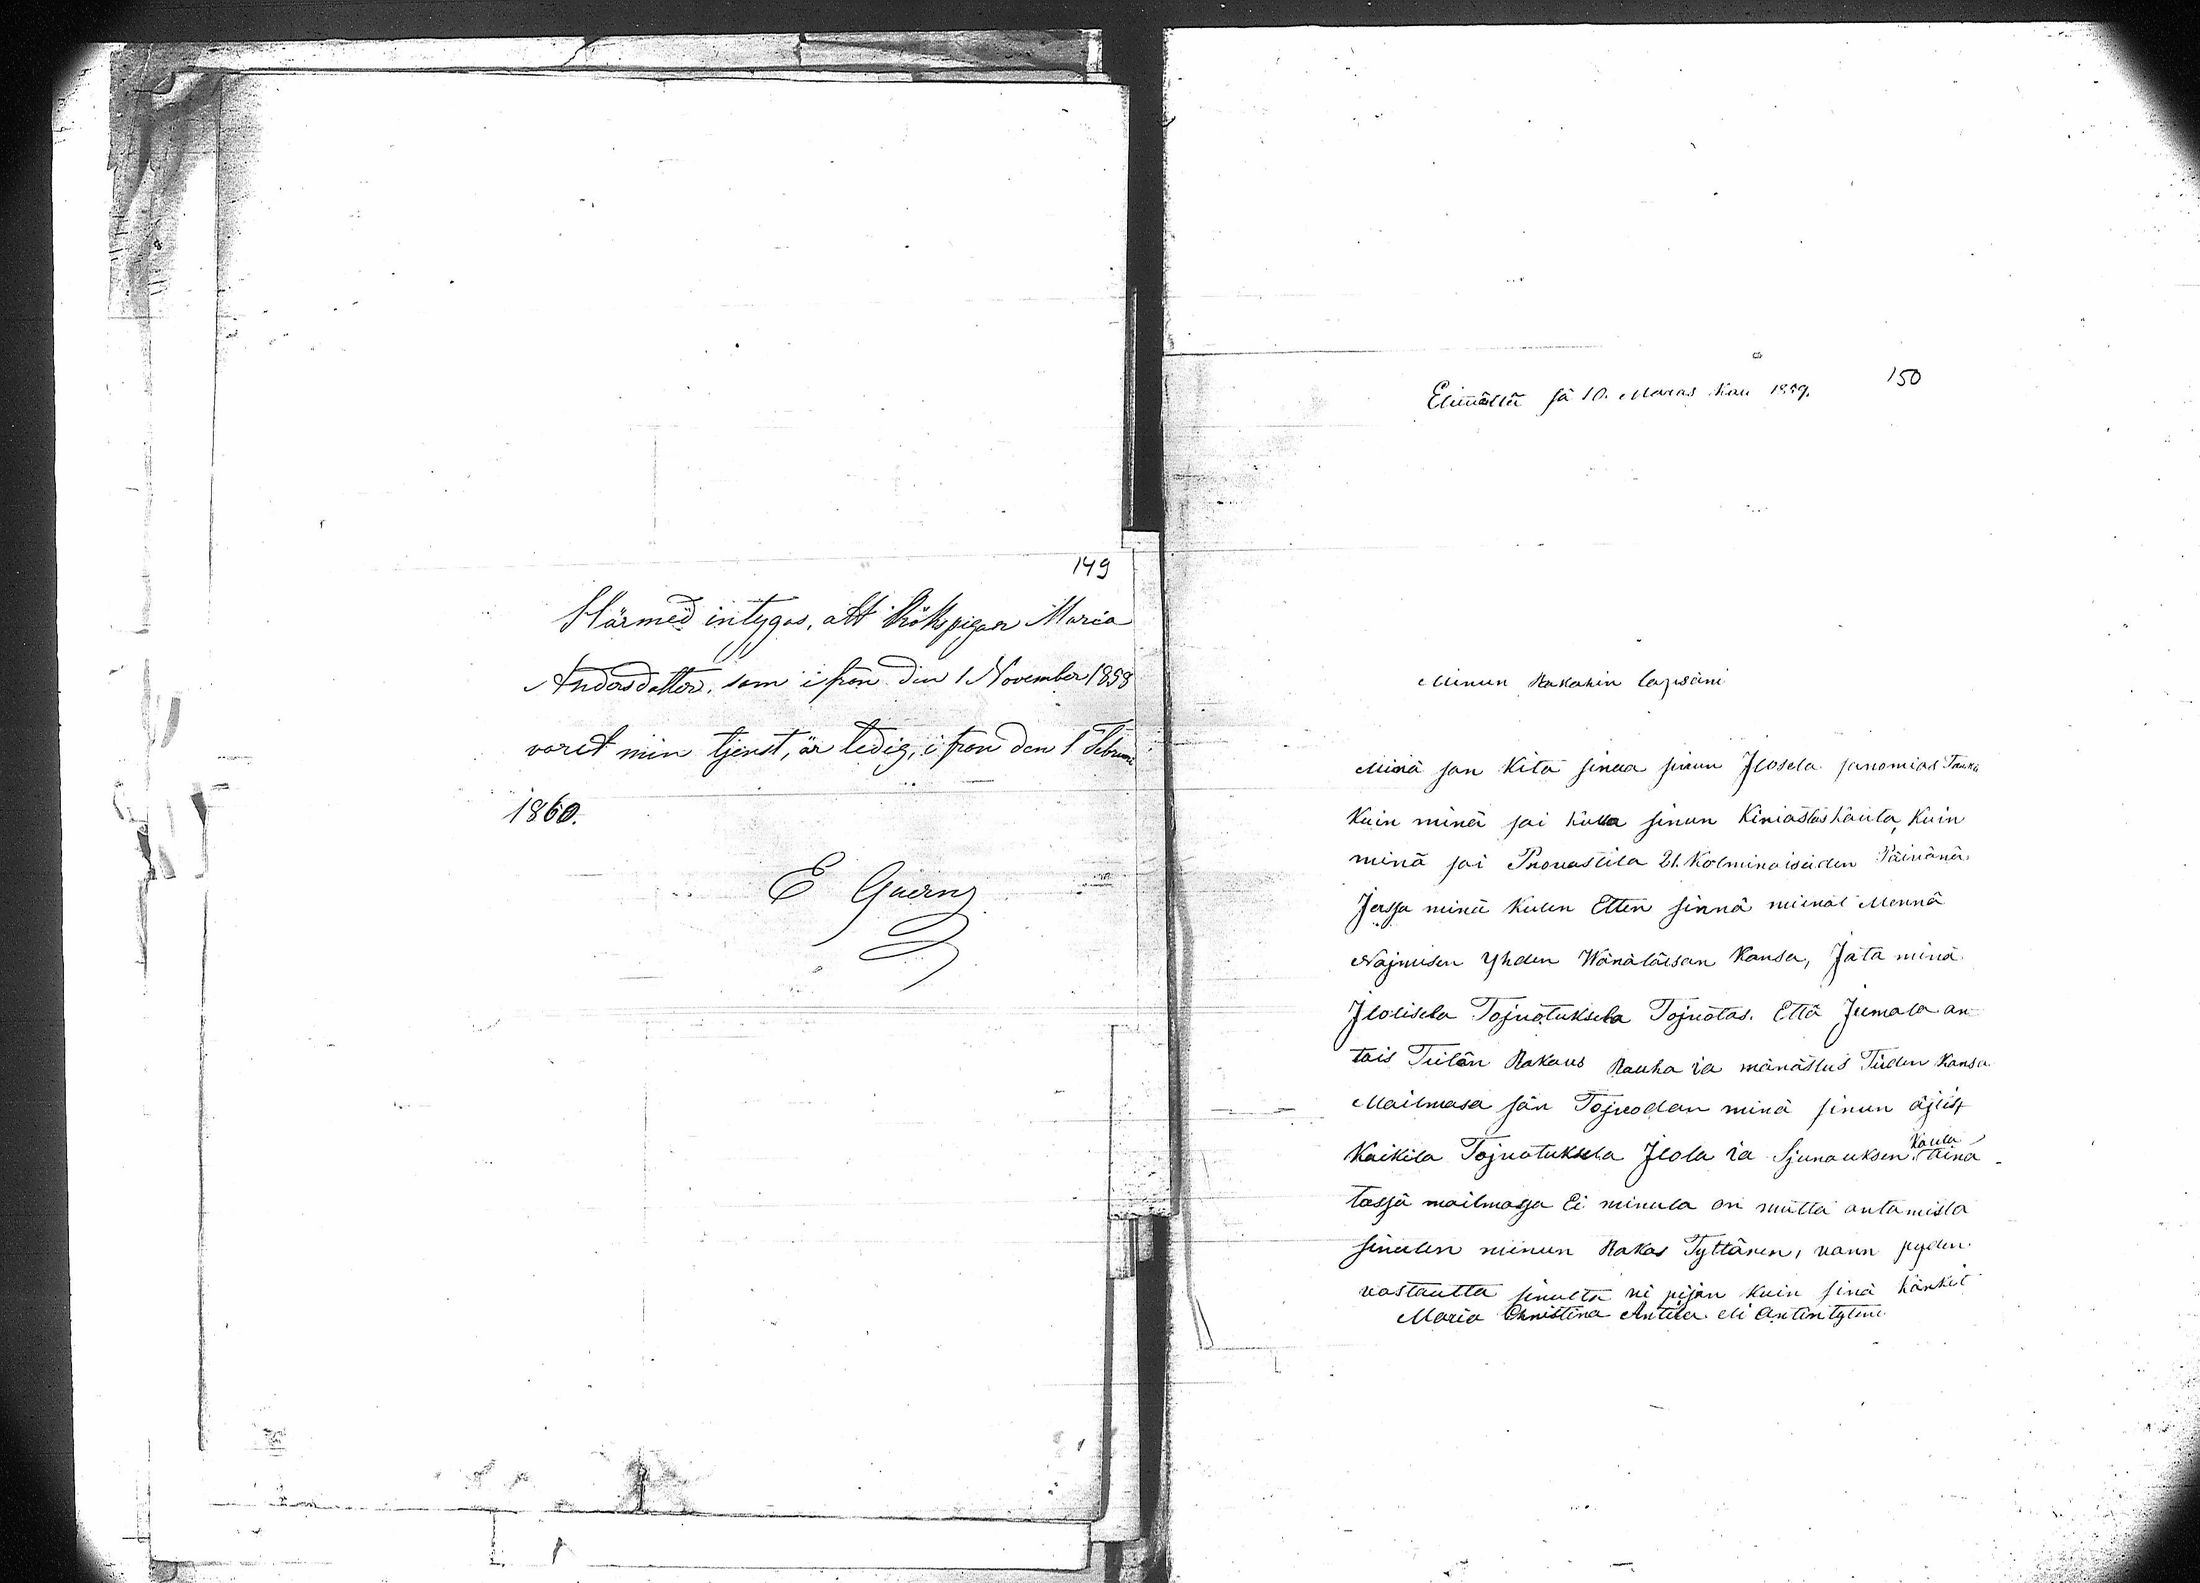 149
Härmed intygas, att Kökspigan Maria
Andersdotter, som ifrån den 1 November 1858
varit min tjenst, är ledig, ifrån den 1 Februari
1860.
E Guern
150
Elimällä sä 10. Maras Kuu 1859.
Minun Rakahin lapseini
Minä san Kitä sinua sinun Ilosela sanomias Tauta
Kuin minä sai kulla sinun Kiriastas käuta, Kuin
minä sai Prouastila 21. Kolminaiseiden Päinänä
Jossa minä Kulen Etten sinnä mienat Mennä
Najmisen Yhden Wänäläisen Kansa, Jäta minä
Iloisela Tojuotuksela Tojuotas. Että Jumala an
tais Teilän Rakaus Rauha ia mänästus Teiden Kansa
Mailmasa sän Tojuodan minä sinun
Kaikila Tojuotuksela Ilola ia Sjunauksen Kaula Täinä
tässä mailmassa Ei minula on mittä antamista
sinulen minun Rakas Tyttären, vann pyden
vastautta sinulta ni pijan kuin sinä
Maria Christina Antila eli Antintytär